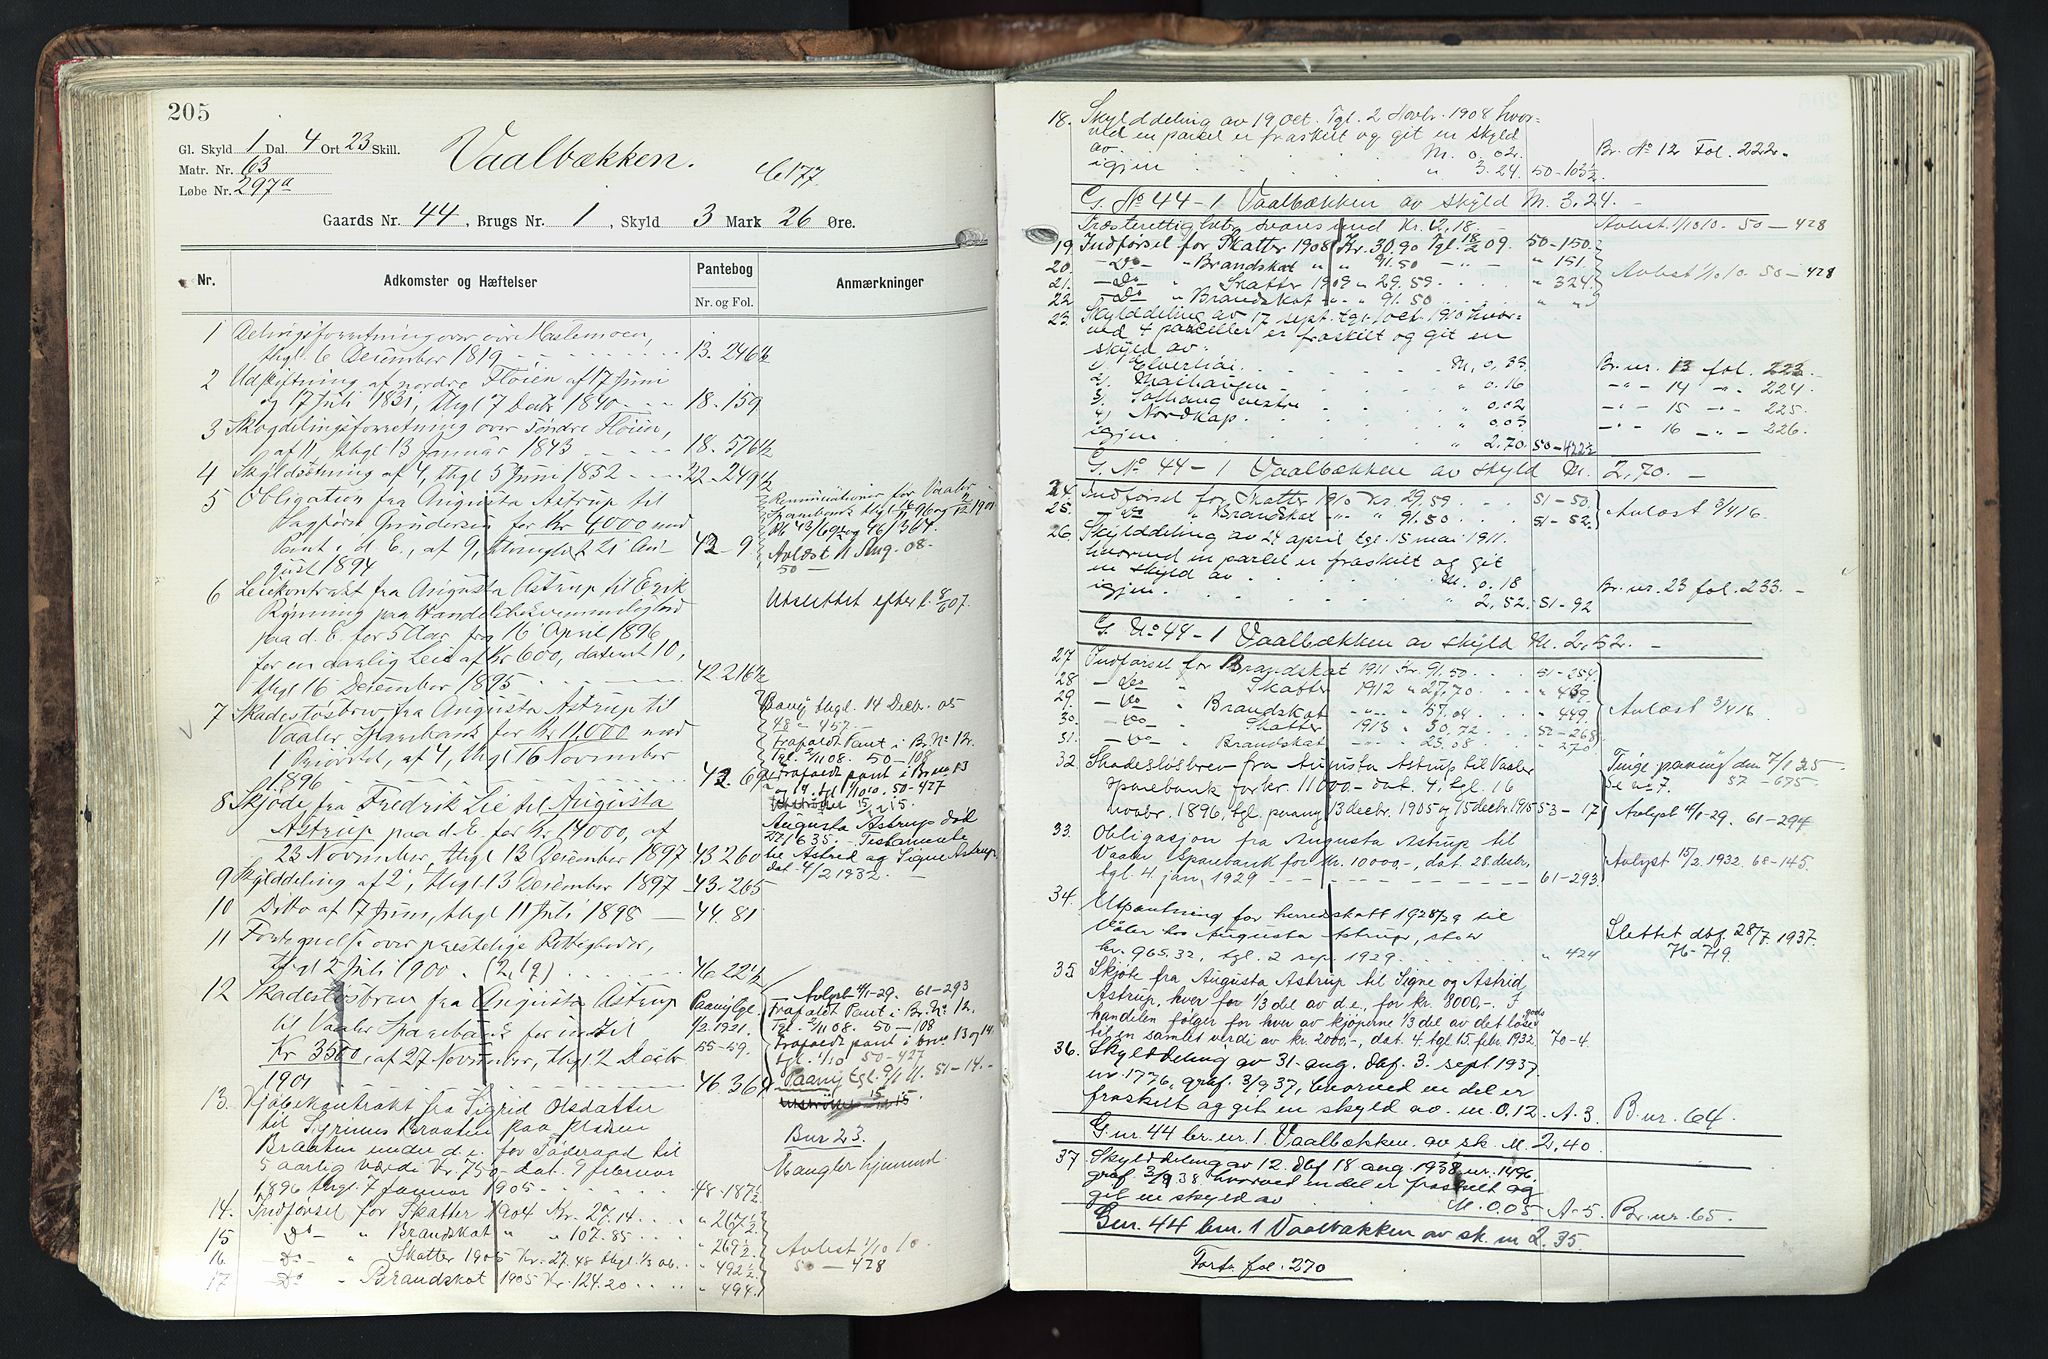 205
Gl. Skyld 1 Dal. 4 Ort 23 Skill.
Matr. Nr. 63
Løbe Nr. 297a
Vaalbækken.
6177
Gaards Nr. 44, Brugs Nr. 1, Skyld 3 Mark 26 Øre.
Nr. Adkomster og Hæftelser Pantebog Anmærkninger
Nr. og Fol.
1 Delingsforretning over Haslemoen,
thgl. 6 December 1819 13. 246½
2 Udskiftning af nordre Floien af 17 Juni
og 17 Juli 1831, thgl 7 Decbr 1840 18-159
3 Skogdelingsforretning over søndre Floien,
af 11, thgl 13 Januar 1843 18. 576½
4 Skyldsætning af 4, thgl 5 Juni 1852 22-249½
5 Obligation fra Augusta Astrup til
Gundersen for Kr 4000 med
Pant i d. E., af 9, thinglæst 21 Au- 42-9
gust 1894
Avløst 11 Aug. 08.
50 —
6 Leiekontrakt fra Augusta Astrup til Erik
Rynning paa Handelsbekvemmelighed
paa d. E. for 5 Aar fra 16 April 1896
for en aarlig Leie af Kr 600, dateret 10,
thgl 16 December 1895 42 216½
Udslettet efter l. 8/6 07.
7 Skadesløsbrev fra Augusta Astrup til
Vaaler Sparebank for Kr 11,000 med
1 Prioritet, af 4, thgl 16 November
1896 42. 69
Paany thgl. 14 Decbr. 05
48 - 457.
Frafaldt Pant i Br. No 12.
Tgl. 2/11 08. 50-108
Frafaldt pant i Br no 13
og 14. tgl 1/10 10. 50-427
8 Skjøde fra Fredrik Lie til Augusta
Astrup paa d. E. for Kr 14000, af
23 November, thgl 13 December 1897 43 260
Augusta Astrup død
Testamente
til Astrid og Signe Astrup,
dat. 4/2 1932.
9 Skylddeling af 2, thgl 13 December 1897 43-265
10 Ditto af 17 Juni, thgl 11 Juli 1898 44. 81
11 Fortegnelse over præstelige Rettigheder,
thgl 2 Juli 1900. (2,19) 46 22½
12 Skadesløsbrev fra Augusta Astrup
til Vaaler Sparebank for indtil
Kr 3500, af 27 November, thgl 2 Decbr
1901 46. 364
Paany tgl.
1/2. 1921.
55-59.
Avlyst 4/1-29. 61-293
Frafaldt Pant i Br. No. 12.
Tgl. 2/11 08. 50-108
Frafaldt pant i brno 13 og 14
tgl. 1/10 50-427
Paany tgl. 9/1 11. 51-14.
Bnr 23.
13. Kjøbekontrakt fra Sigrid Olsdatter
til Braaten paa pladsen
Braaten under d. e. for Føderaad til
5 aarlig værdi Kr. 750 dat. 9 februar
1896 thgl. 7 Januar 1905 48-187½
Mangler hjemmel.
14. Indførsel for Skatter 1904 Kr. 27.14 " 267½
15 Do " Brandskat " " 107.85 " 269½
16 Do " Skatter 1905 Kr. 27.48 thgl. 1/3 06 " 492½
17 Do " Brandskat 1905 Kr. 124.20 " 494
Avløst 1/10 10.
50 — 428
18. Skylddeling av 19 Oct. Tgl. 2 Novbr. 1908 hvor-
ved en parcel er fraskilt og git en skyld
av M. 0.02. Br. No 12 Fol. 222.
igjen " 3.24. 50-103½
G. No 44-1 Vaalbækken av skyld M. 3.24.
Præsterettigheder svarende Kr. 2.18.
19. Indførsel for Skatter 1908 Kr. 30,90 Tgl. 18/2 09. 50-150.
20. -Do- " Brandskat " " 91.50 " 151
21. -Do- " Skatter 1909 " 29.59 " 324
22. -Do- " Brandskat " " 91.50 " "
Avløst 1/10 10. 50-428
Avløst 1/10 10. 50-428
23. Skylddeling av 17. sept. tgl. 1 oct. 1910 hvor-
ved 4 parceller er fraskilt og git en
skyld av:
1). Elverhøi M. 0,33 Br. nr. 13 fol. 223.
2). Maihaugen " 0.16 -"- 14 -"- 224.
3). Solhaug vestre " 0.02 -"- 15 -"- 225.
4). Nordkap " 0.03 -"- 16 -"- 226.
igjen " 2.70. 50-422½
G. No 44-1 Vaalbækken av skyld M. 2,70.
24. Indførsel for Skatter 1910 Kr. 29.59 51-50.
25. -Do- " Brandskat " " 91.50 51-52.
Avløst 3/4 16.
26. Skylddeling av 24 april tgl. 15 mai 1911.
hvorved en parcel er fraskilt og git
en skyld av M. 0.18 Br. nr. 23 fol. 233.
igjen " 2,52. 51-92
G. No 44-1 Vaalbækken av skyld M. 2,52.
27. Indførsel for Brandskat 1911 Kr. 91.50 51-254.
28 -Do- " Skatter 1912 " 27,70 " 439.
29. -Do- " Brandskat " " 57,04 " 449.
30. -Do- " Skatter 1913 " 30,72 52-268
31. -Do- " Brandskat " " 23,08 " 270
Avløst 3/4 16.
32. Skadesløsbrev fra Augusta Astrup til Vaaler
Sparebank for kr. 11000,- dat. 4, tgl. 16
novbr. 1896, tgl. paany 13 decbr. 1905 og 15 decbr. 1915 53-17
Tinge paany den 7/1 25
Se nr 7. 57-675.
Avlyst 4/1-29. 61-294
33. Obligasjon fra Augusta Astrup til
Vaaler Sparebank for kr. 10000,-, dat. 28 decbr.
tgl. 4 jan. 1929 61-293.
Avlyst 15/2. 1932 68-145.
34. Utpantning for herredskatt 1928/29 til
Våler hos Augusta Astrup, stor
kr. 965.32, tgl. 2 sep. 1929. " 424
Slettet dbf. 28/7. 1937.
76-719.
35. Skjøte fra Augusta Astrup til Signe og Astrid
Astrup, hver for 1/3 del av d. e., for kr. 8000,-. I
handelen følger for hver av kjøperne 1/3 del av det løse gods
til en samlet verdi av kr. 2000,-, dat. 4. tgl. 15. febr. 1932. 70-4.
36. Skylddeling av 31. aug. dbf. 3. sept 1937.
nr. 1776, graf. 3/9 37, hvorved en del er
fraskilt og git en skyld av. m. 0.12. A-3. B. nr. 64.
G. nr 44 br. nr. 1. Vaalbækken. av sk. M. 2,40
37 Skylddeling av 12. dbf 18 aug. 1938 nr. 1496.
graf. 3/9 38. hvorved en del er fraskilt og
git en skyld av M. 0,05 A-5. Br. nr. 65.
G. nr. 44 bnr. 1 Vaalbækken av sk. m 2.35.
Forts. fol. 270